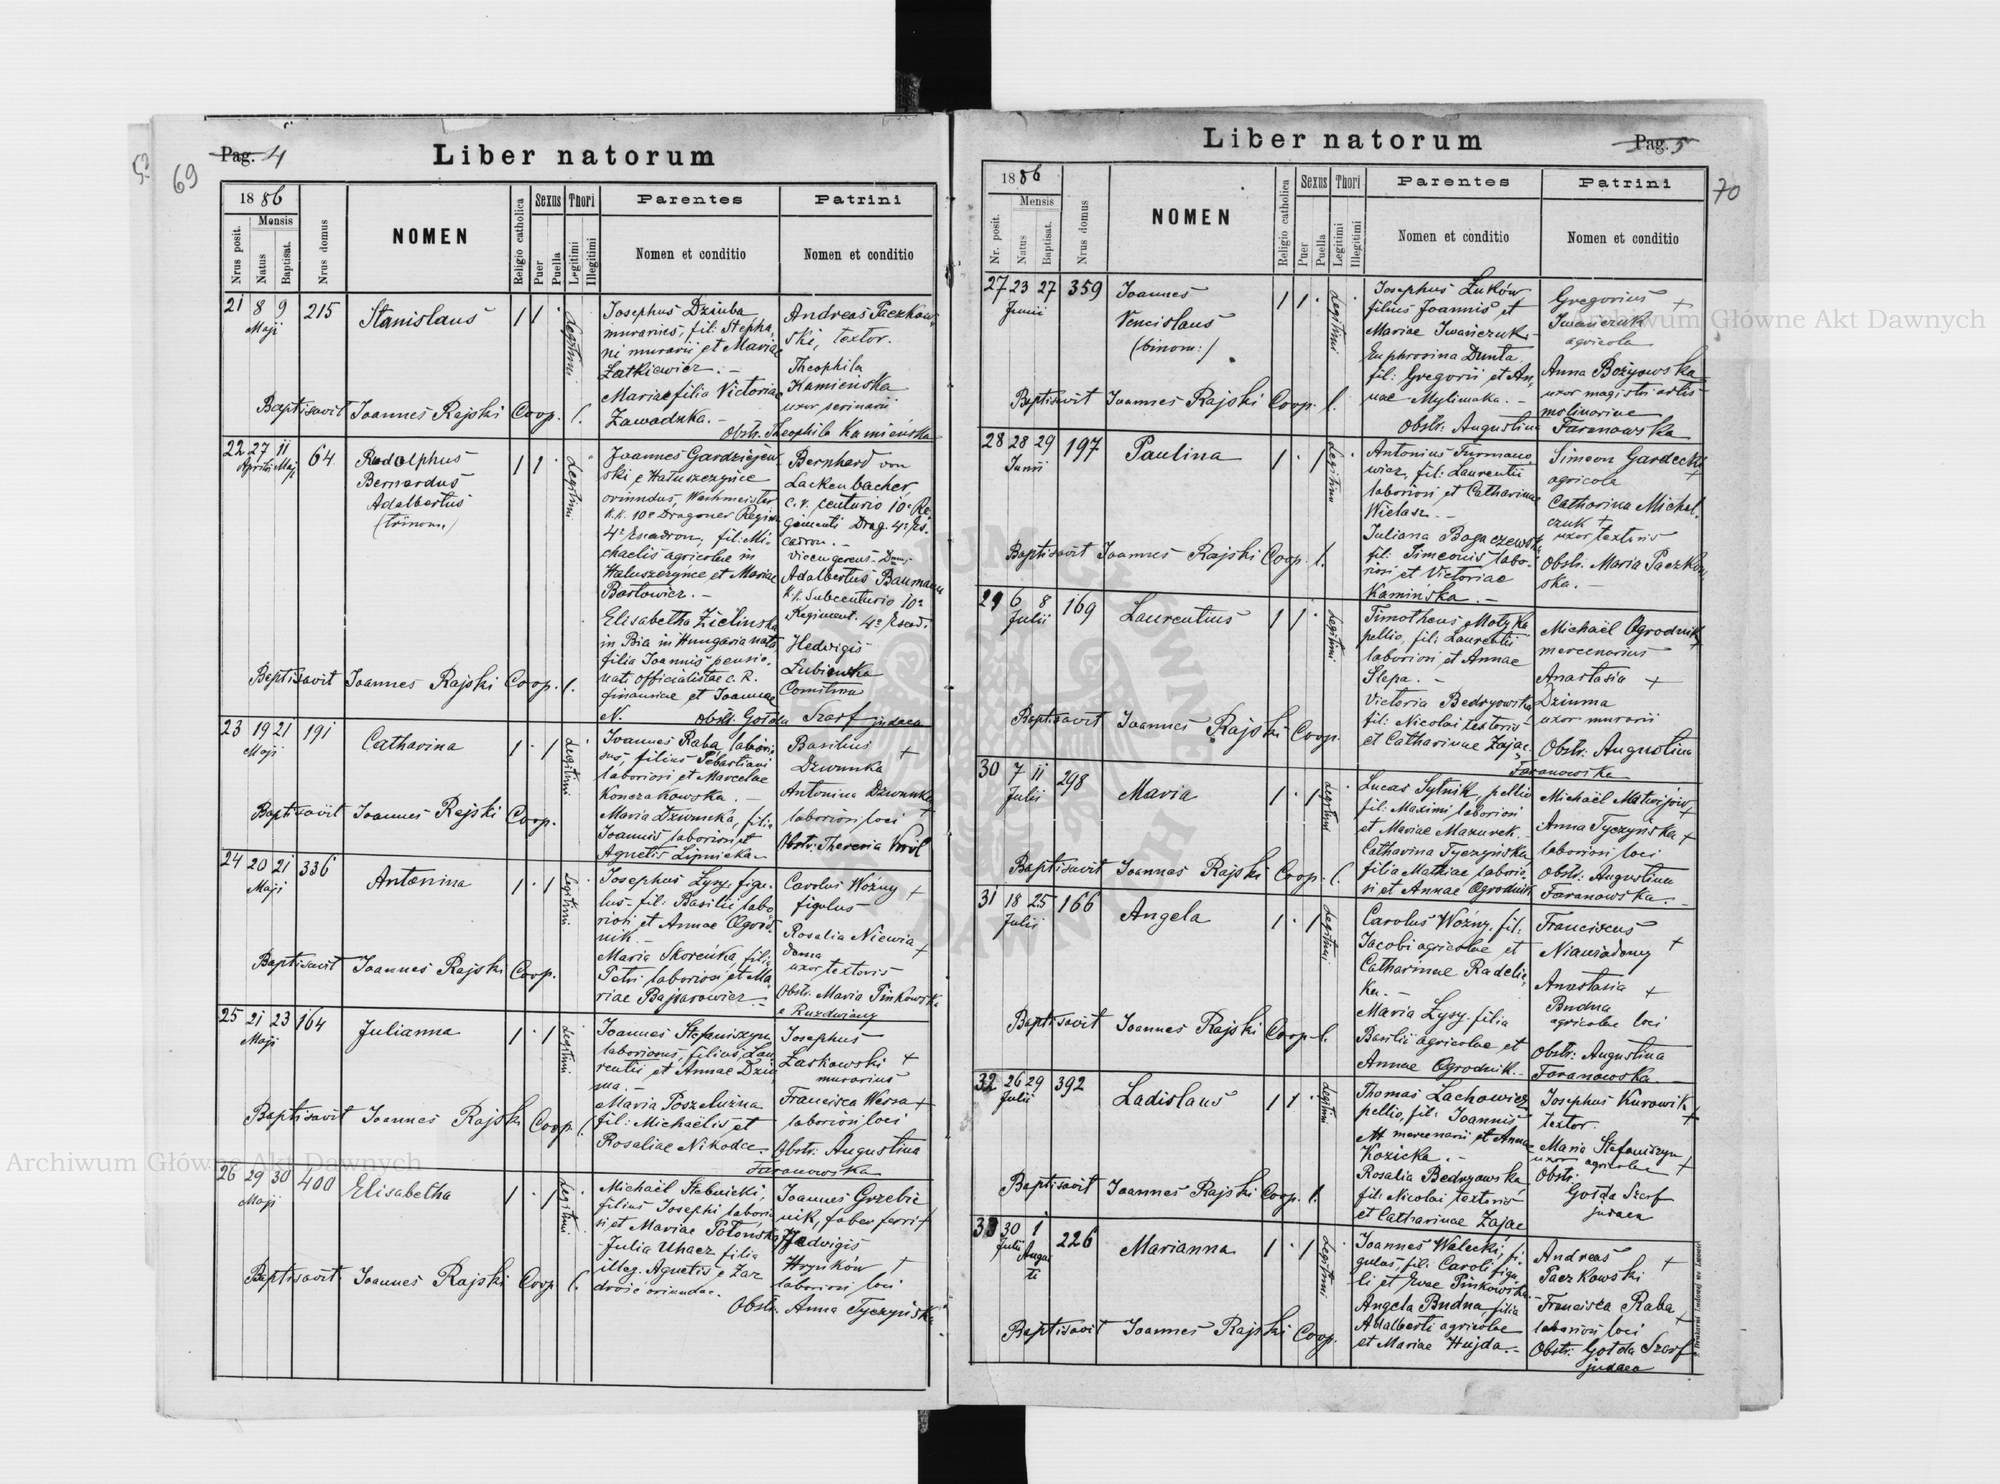 Liber natorum
Pag. 4
69
1886
Mensis
Nrus posit.
Natus
Baptisat.
Nrus domus
NOMEN
Religio catholica
Sexus
Puer
Puella
Thori
Legitimi
Illegitimi
Parentes
Nomen et conditio
Patrini
Nomen et conditio
21 8 9 215 Stanislaus 1 1
Maji
Legitimi
Josephus Dziuba
murarius, fil: Stepha,
ni murarii et Mariae
Zatkiewicz. –
Maria filia Victoriae
Zawadzka. –
Andreas Paczkow,
ski, textor.
Theophila
Kamieńska
uxor
Obstr. Theophila Kamieńska
Baptisavit Joannes Rajski Coop.
22 27 11 64 Rudolphus 1 1
Aprilis Maji
Bernardus
Adalbertus
(trinom.)
Legitimi
Joannes Gardziejew
ski e Hałuszczyńce
oriundus, Wachmeister
k.k. 10e Dragoner Regim
4e Escadron, fil: Mi-
chaelis agricolae in
Hałuszczyńce et Mariae
Bartowicz. –
Elisabetha Zielinska
in Bia in Hungaria nata
filia Joannis pensio-
nati officialistae c. R.
financiae et Joannae
N.
Bernhard von
Lackenbacher
c. r. centurio 10e Re
gimenti Drag. 4e Es
cadron. –
vicengerens
Adalbertus Baumann
k.k. Subcenturio 10e
Regiment. 4e Escad.
Hedwigis
Łubieńska
Comitissa
Obstr. Gołda Szarf judaea
Baptisavit Joannes Rajski Coop.
23 19 21 191 Catharina 1 1
Maji
Legitimi
Joannes Raba, labori
sus, filius Sebastiani
laboriosi et Marcelae
Konczakowska. –
Maria Dzwunka, filia
Joannis laboriosi et
Agnetis Lipnicka –
Basilius +
Dzwunka
Antonina Dzwunka +
laboriosi loci
Obstr: Theresia Król
Baptisavit Joannes Rajski Coop.
24 20 21 336 Antonina 1 1
Maji
Legitimi
Josephus Łysy, figu-
lus fil: Basilii labo
riosi et Annae Ogrod,
nik. –
Maria Skoreńka, filia
Petri laboriosi et Ma,
riae Bajsarowicz. –
Carolus Woźny +
figulus
Rosalia Niewia +
doma
uxor textoris
Obstr. Maria Pińkowska
e Ruzdwiany
Baptisavit Joannes Rajski Coop.
25 21 23 164 Julianna 1 1
Maji
Legitimi
Joannes Stefaniszyn
laboriosus, filius Lau
rentii et Annae Dziu
ma. –
Maria Poszelużna
fil: Michaëlis et
Rosaliae Nikodce.
Josephus
Laskowski +
murarius
Francisca Wersa +
laboriosi loci
Obstr: Augustina
Faranowska
Baptisavit Joannes Rajski Coop.
26 29 30 400 Elisabetha 1 1
Maji
Legitimi
Michaël Słobnicki,
filius Josephi laborio
si et Mariae Potońska
Julia Uhacz filia
illeg. Agnetis e Zaz
drość oriundae.
Joannes Grzebie
nik, faber ferri +
Hedwigis
Hryńków +
laboriosi loci
Obstr. Anna Tyczyńska
Baptisavit Joannes Rajski Coop.
Liber natorum
Pag. 5
70
1886
Mensis
Nr. posit.
Natus
Baptisat.
Nrus domus
NOMEN
Religio catholica
Sexus
Puer
Puella
Thori
Legitimi
Illegitimi
Parentes
Nomen et conditio
Patrini
Nomen et conditio
27 23 27 359 Joannes 1 1
Junii
Venceslaus
(binom:)
Legitimi
Josephus Łuków
filius Joannis et
Mariae Iwańczuk –
Euphrosina Dunta
fil: Gregorii et An,
nae Mylimaka. –
Gregorius +
Iwańczuk
agricola
Anna Bożyowska
uxor magistri artis
molinariae
Obstr: Augustina Faranowska
Baptisavit Joannes Rajski Coop.
28 28 29 197 Paulina 1 1
Junii
Legitimi
Antonius Furmano,
wicz, fil: Laurentii
laboriosi et Catharina
Wielasz. –
Juliana Bogaczewska
fil: Simeonis labo-
riosi et Victoriae
Kamińska. –
Simeon Gardecki +
agricola
Catharina Michal-
czuk +
uxor textoris
Obstr. Maria Paczkow
ska. –
Baptisavit Joannes Rajski Coop.
29 6 8 169 Laurentius 1 1
Julii
Legitimi
Timotheus Motyka
pellio, fil: Laurentii
laboriosi et Annae
Slepa. –
Victoria Bedryowska
fil: Nicolai textoris
et Catharinae Zając
Michaël Ogrodnik +
mercenarius
Anastasia +
Dziuma
uxor murarii
Obstr: Augustina
Faranowska
Baptisavit Joannes Rajski Coop.
30 7 11 298 Maria 1 1
Julii
Legitimi
Lucas Sytnik, pellio
fil: Maximi laboriosi
et Mariae Mazurek. –
Catharina Tyczyńska,
filia Mathiae laborio,
si et Annae Ogrodnik
Michaël Matwijów +
Anna Tyczyńska +
laboriosi loci
Obstr: Augustina
Faranowska. –
Baptisavit Joannes Rajski Coop.
31 18 25 166 Angela 1 1
Julii
Legitimi
Carolus Woźny, fil:
Jacobi agricolae et
Catharinae Radelic,
ka. –
Maria Łysy filia
Basilii agricolae et
Annae Ogrodnik. –
Franciscus
Niawiadomy +
Anastasia +
Budna
agricolae loci
Obstr: Augustina
Faranowska. –
Baptisavit Joannes Rajski Coop.
32 26 29 392 Ladislaus 1 1
Julii
Legitimi
Thomas Lachowicz
pellio, fil: Joannis
mercenarii et Annae
Kozicka. –
Rosalia Bedryowska
fil: Nicolai textoris
et Catharinae Zając
Josephus Kurowik +
textor.
Maria Stefaniszyn +
uxor agricolae
Obstr:
Gołda Szarf
judaea
Baptisavit Joannes Rajski Coop.
33 30 1 226 Marianna 1 1
Julii Augu
sti
Legitimi
Joannes Walecki, fi-
gulus, fil: Caroli figu
li et Evae Pinkowska
Angela Budna, filia
Adalberti agricolae
et Mariae Hujda. –
Andreas +
Paczkowski
Francisca Raba +
laboriosi loci
Obstr: Gołda Szarf
judaea
Baptisavit Joannes Rajski Coop.
Archiwum Główne Akt Dawnych
Archiwum Główne Akt Dawnych